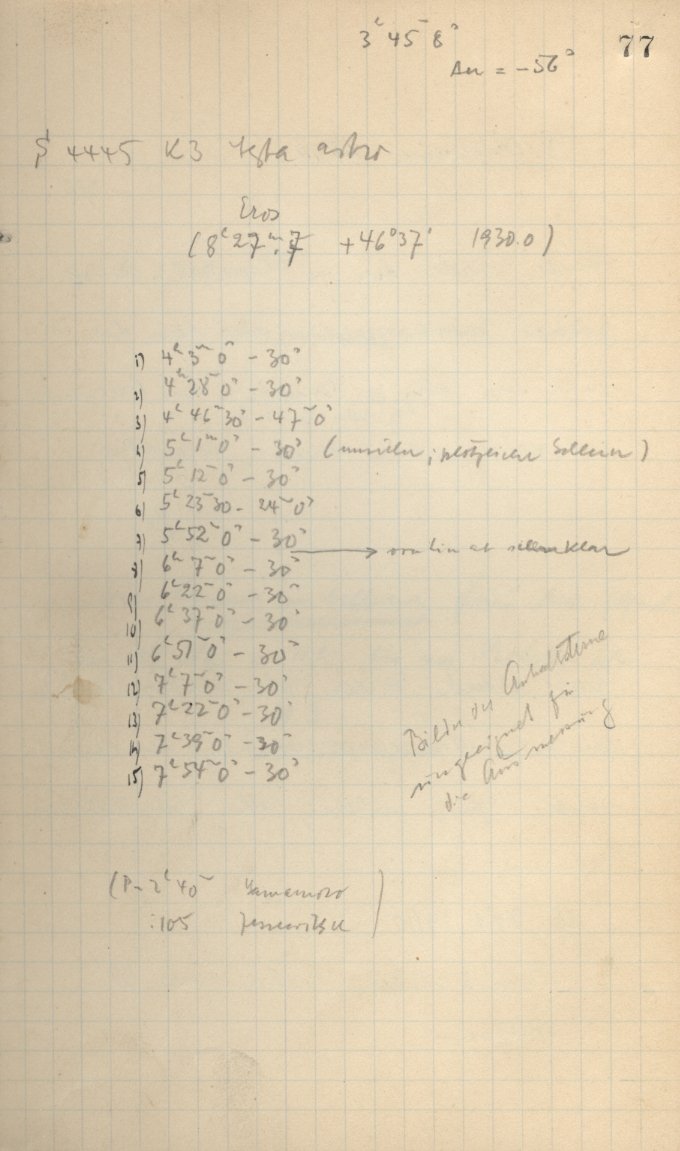 3ʰ 45ᵐ 8ˢ
77
Δu = -56ˢ
4445 K3 astro
Eros
(8ʰ 27ᵐ.7 +46°37' 1930.0)
1) 4ʰ 3ᵐ 0ˢ - 30ˢ
2) 4ʰ 28ᵐ 0ˢ - 30ˢ
3) 4ʰ 46ᵐ 30ˢ - 47ᵐ 0ˢ
4) 5ʰ 1ᵐ 0ˢ - 30ˢ (; plötzlicher )
5) 5ʰ 12ᵐ 0ˢ - 30ˢ
6) 5ʰ 23ᵐ 30 - 24ᵐ 0ˢ
7) 5ʰ 52ᵐ 0ˢ - 30ˢ
→ von hier ab klar
8) 6ʰ 7ᵐ 0ˢ - 30ˢ
9) 6ʰ 22ᵐ 0ˢ - 30ˢ
10) 6ʰ 37ᵐ 0ˢ - 30ˢ
11) 6ʰ 51ᵐ 0ˢ - 30ˢ
12) 7ʰ 7ᵐ 0ˢ - 30ˢ
13) 7ʰ 22ᵐ 0ˢ - 30ˢ
14) 7ʰ 39ᵐ 0ˢ - 30ˢ
15) 7ʰ 54ᵐ 0ˢ - 30ˢ
Bilder der Anhaltsterne
ungeeignet für
die Ausmessung
(P - 2ʰ 40ᵐ Yamamoto
:105 )